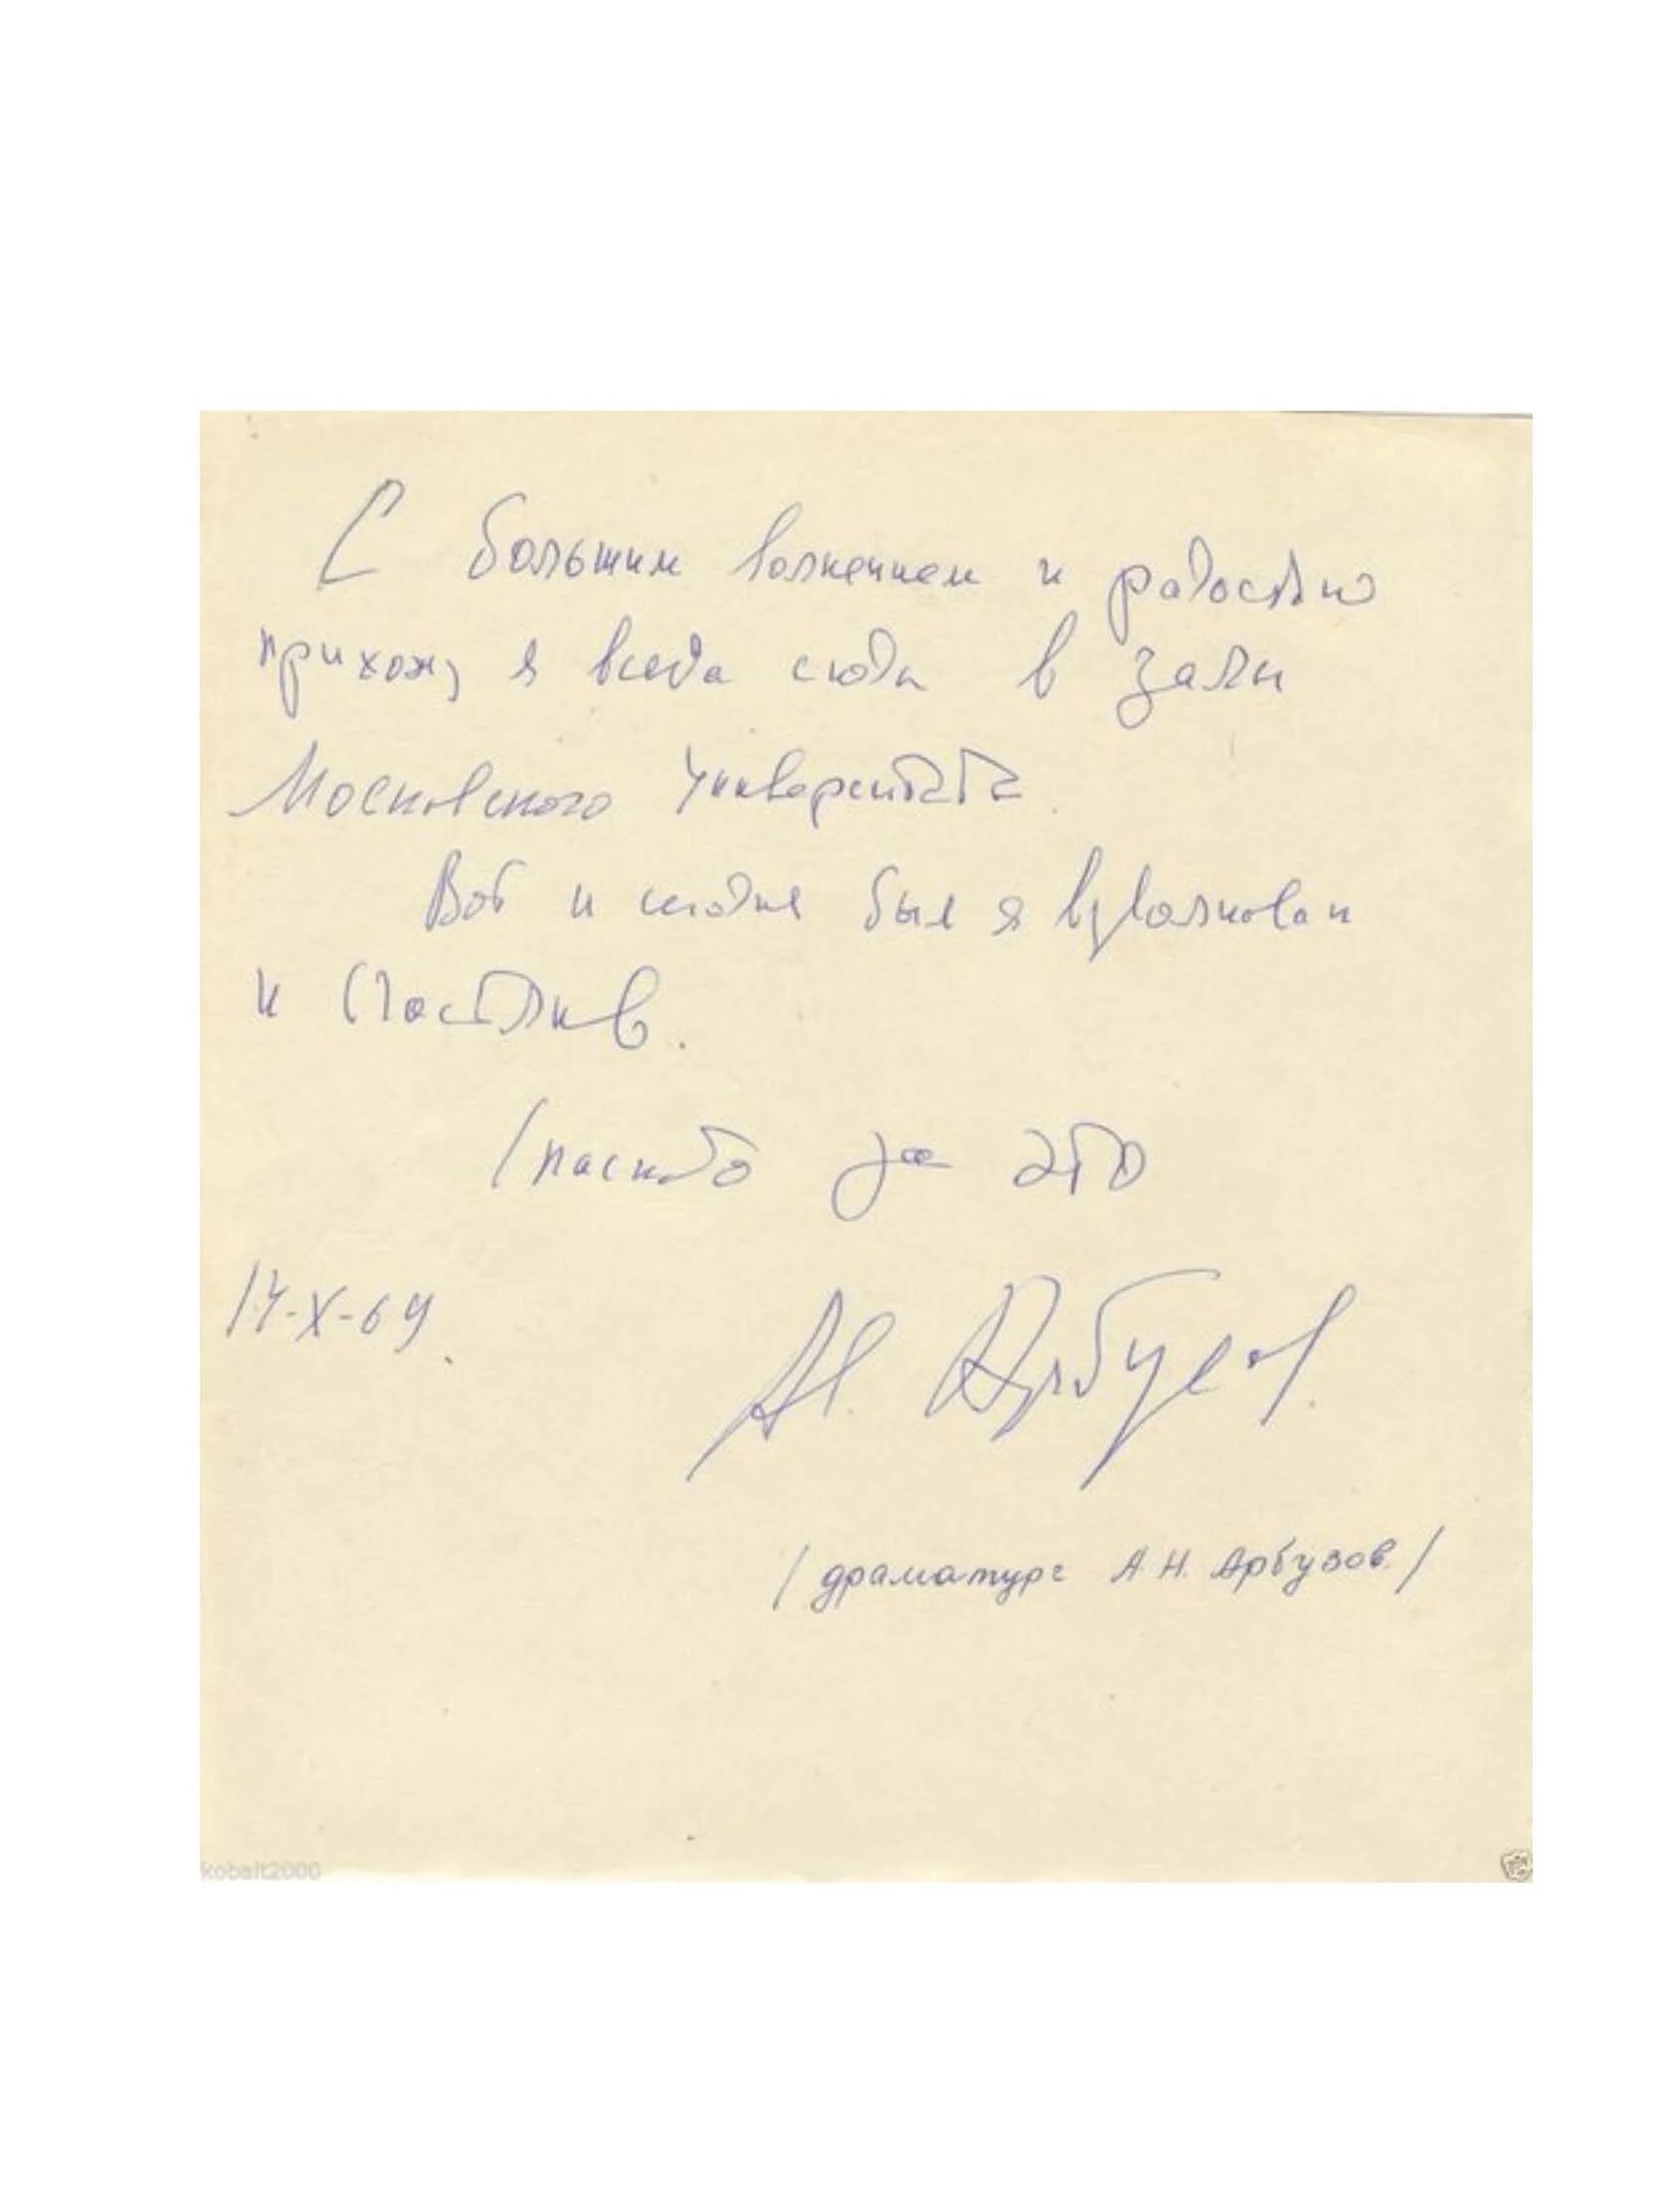 С большим волнением и радостью
прихожу я всегда сюда в залы
Московского Университета.
Вот и сегодня был я взволнован
и счастлив.
Спасибо за это
14-X-69.
Ал. Арбузов.
/драматург А.Н. Арбузов./
kobalt2000